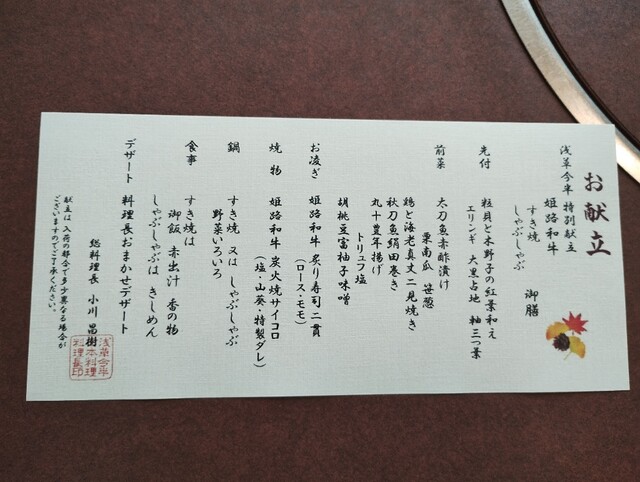 お献立
浅草今半 特別献立
姫路和牛
すき焼
しゃぶしゃぶ
御膳
先付 粒貝と木野子の紅葉和え
エリンギ 大黒占地 軸三つ葉
前菜 太刀魚赤酢漬け
栗南瓜 笹葱
鶏と海老真丈二見焼き
秋刀魚絹田巻き
丸十豊年揚げ
トリュフ塩
胡桃豆富柚子味噌
お凌ぎ 姫路和牛 炙り寿司二貫
（ロース・モモ）
焼物 姫路和牛 炭火焼サイコロ
（塩・山葵・特製ダレ）
鍋 すき焼 又は しゃぶしゃぶ
野菜いろいろ
食事 すき焼は
御飯 赤出汁 香の物
しゃぶしゃぶは きしめん
デザート 料理長おまかせデザート
総料理長 小川 昌樹
浅草今半
日本料理
料理長印
献立は入荷の都合で多少異なる場合が
ございますのでご了承ください。